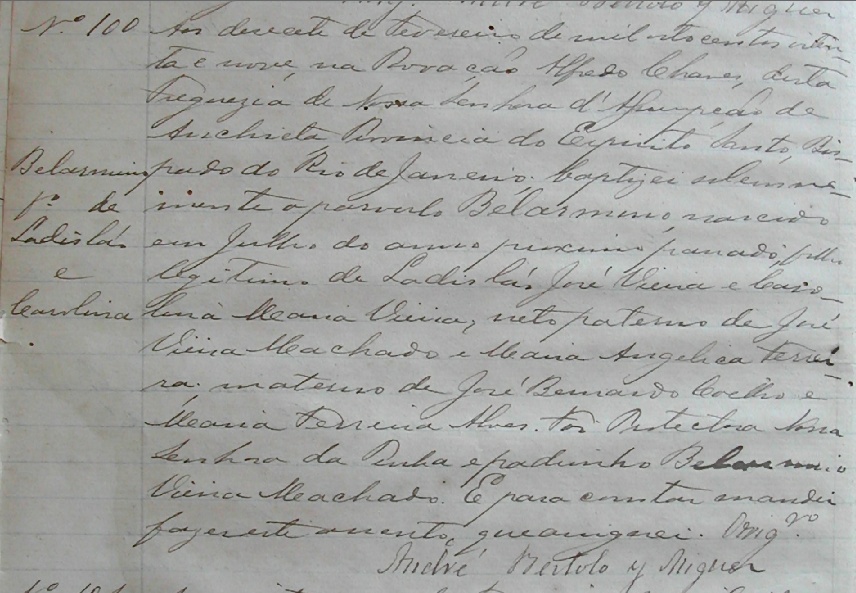 André Bertolo y Miguer
Nº 100
Aos desesete de Fevereiro de mil oitocentos oiten-
ta e nove, na Povoação Alfredo Chaves, desta
Freguezia de Nossa Senhora d'Assumpção de
Anchieta, Provincia do Espirito Santo, Bis-
pado do Rio de Janeiro. baptizei solemne-
mente o parvulo Belarmino, nascido
em Julho do anno proximo passado, filho
legitimo de Ladislás José Vieira e Caro-
lina Maria Vieira, neto paterno de José
Vieira Machado e Maria Angelica Ferrei-
ra. materno de José Bernardo Coelho e
Maria Ferreira Alves. Foi Protectora Nossa
Senhora da Penha e padrinho Belarmino
Vieira Machado. E para constar mandei
fazer este assento, que assignei. O Vigrº
André Bertolo y Miguer
Belarmino
fº. de
Ladislás
e
Carolina